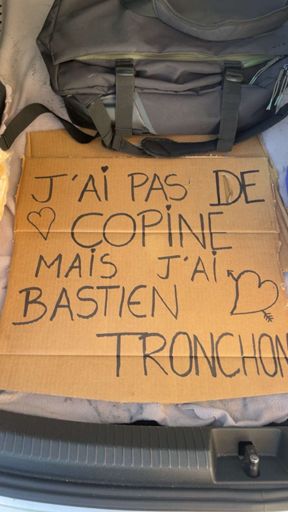 J'AI PAS DE
COPINE
MAIS J'AI
BASTIEN
TRONCHON